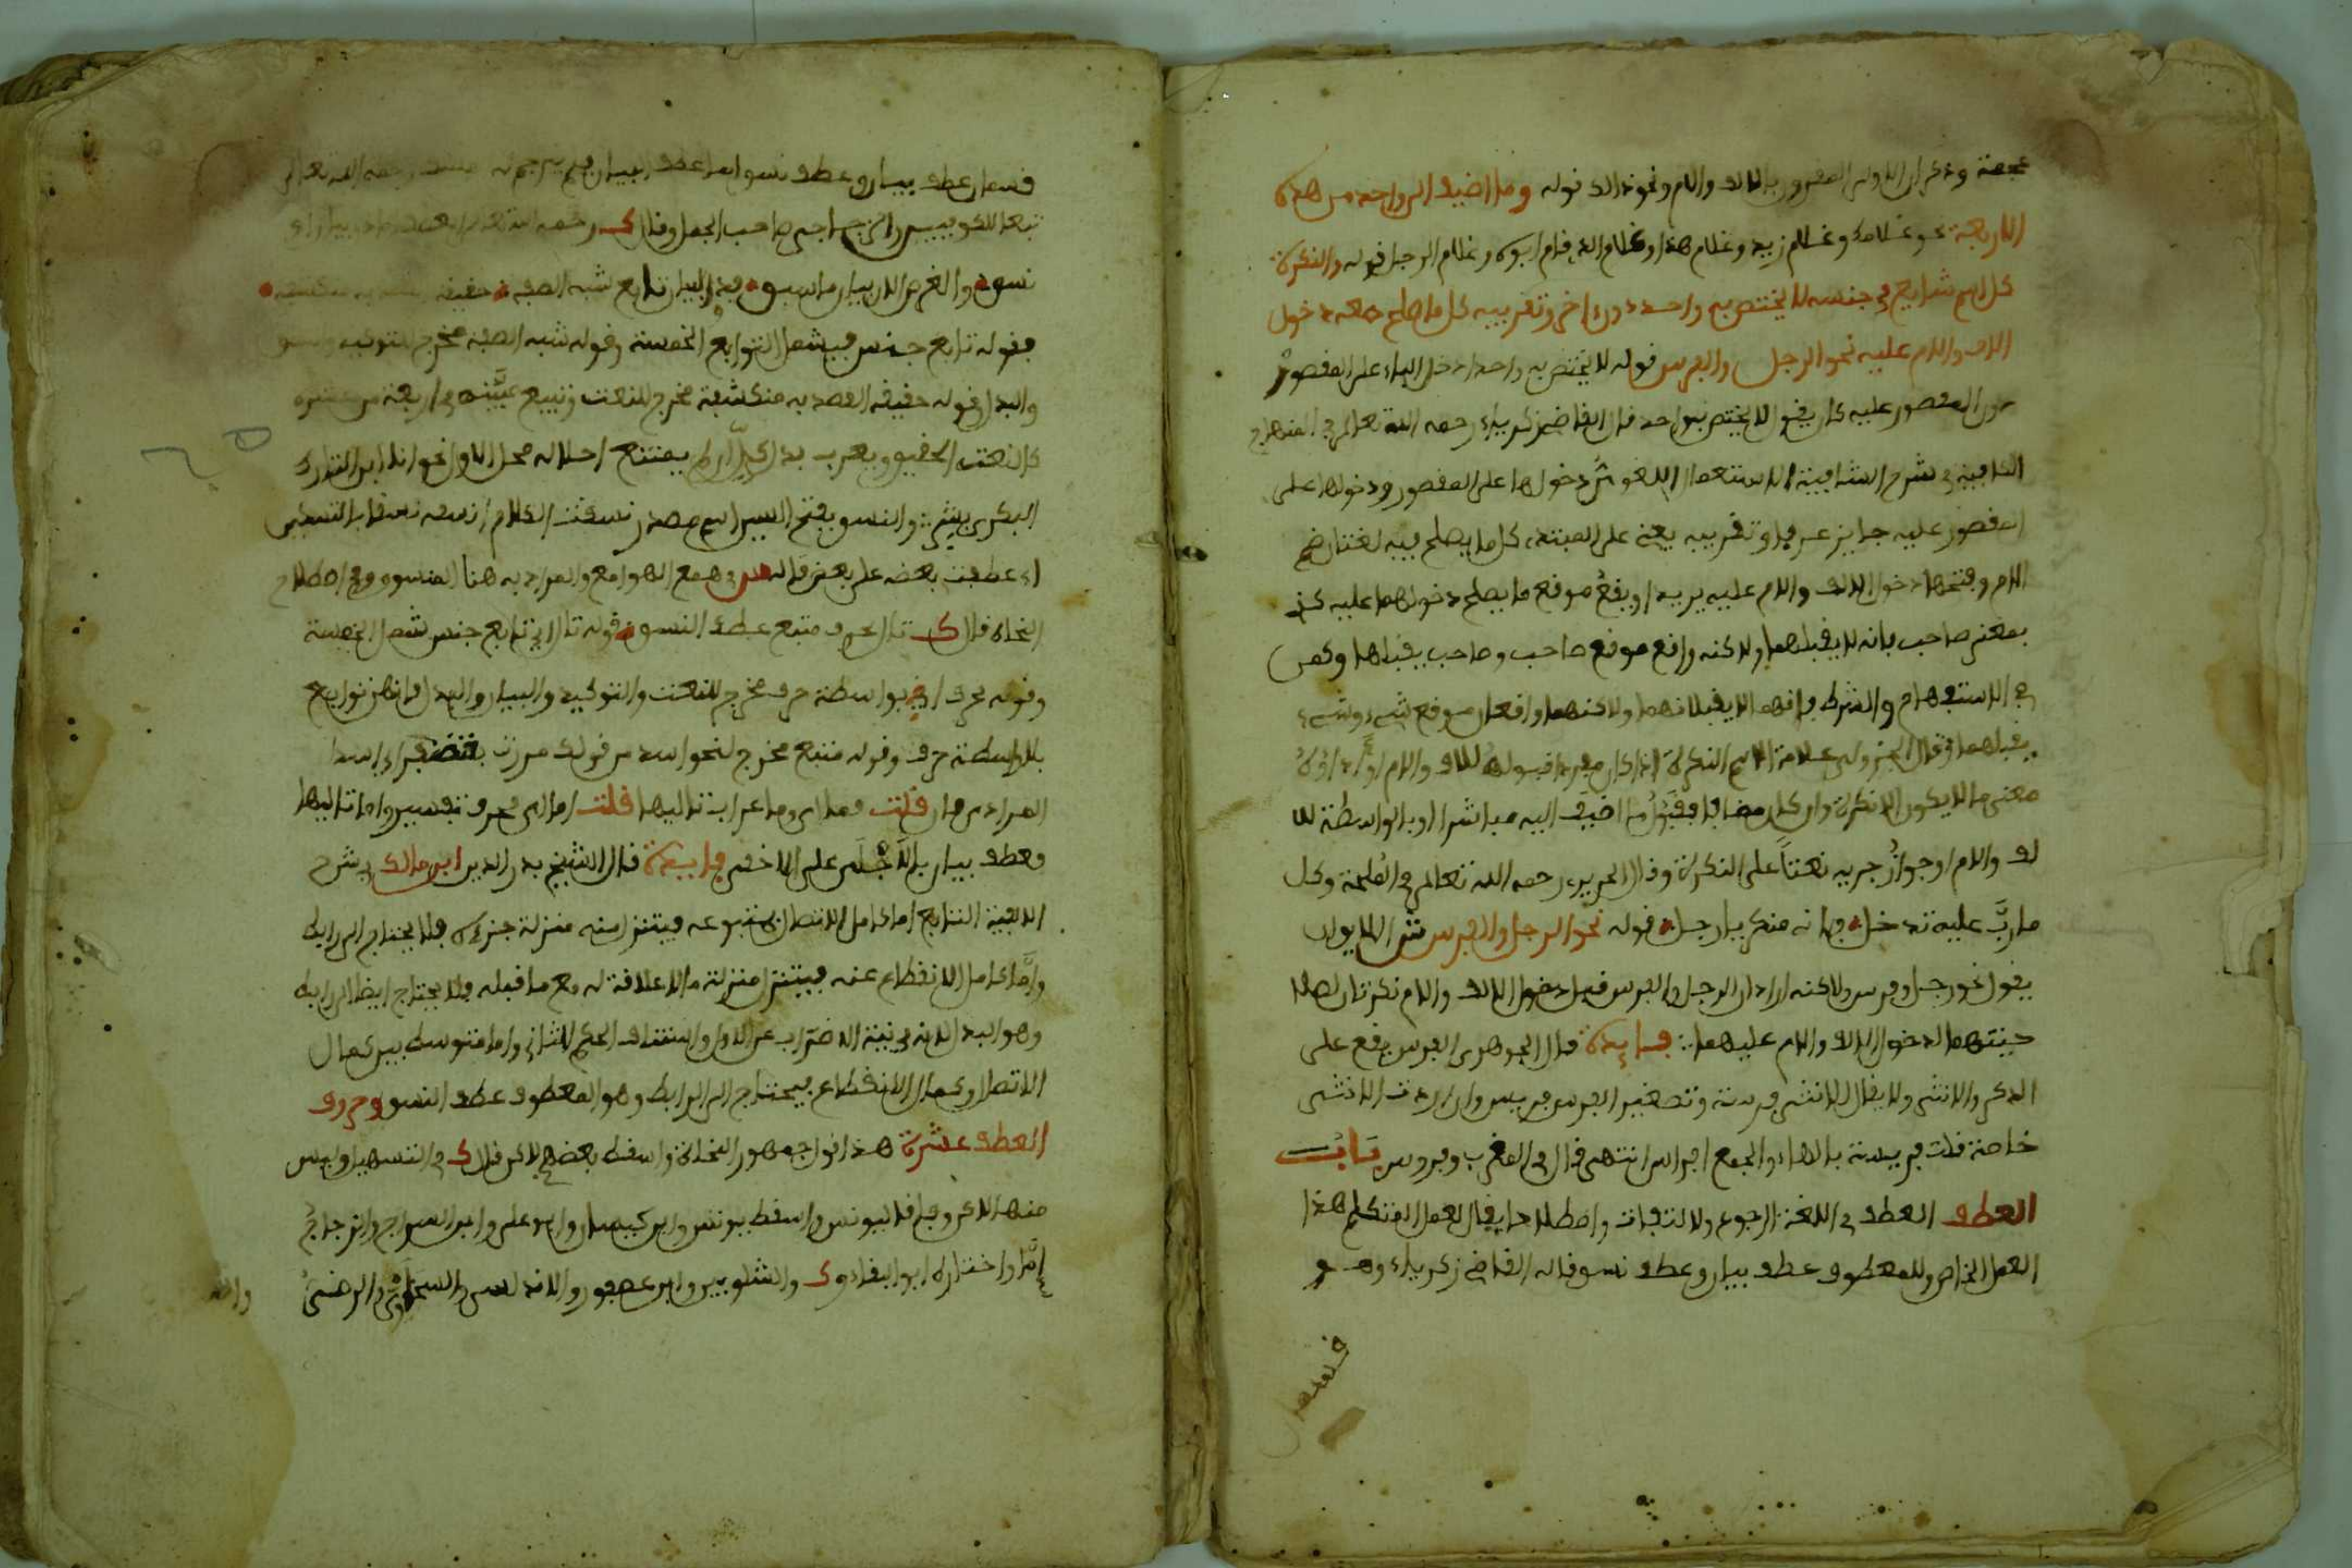 عجمة وذكر ان الاولى المقرون بالالف واللام ونحو ذلك قوله وما اضيف الى واحد من هذه
الاربعة نحو غلامك وغلام زيد وغلام هذا وغلام الذي قام ابوه وغلام الرجل قوله والنكرة
كل اسم شايع في جنسه لا يختص به واحد دون اخر وتقريبه كل ما صلح دخول
الالف واللام عليه نحو الرجل والفرس قوله لا يختص به واحد ادخل الباء على المقصور
دون المقصور عليه كان يقول لا يختص بواحد قال القاضي زكرياء رحمه الله تعالى في المنهاج
الكافية في شرح الشافية الاستعمال اللغوي دخولها على المقصور ودخولها على
المقصور عليه جايز عرفا وتقريبه يعني على المبتدء كل ما يصلح فيه لغتان ضم
اللام وفتحها دخول الالف واللام عليه يريد او يقع موقع ما يصلح دخولهما عليه كذي
بمعنى صاحب فانه لا يقبلهما ولاكنه واقع موقع صاحب وصاحب يقبلها وكمن
في الاستفهام والشرط فانهما لا يقبلانهما ولاكنهما واقعان موقع شيء وشيء
يقبلهما وقال الجزولي علامة الاسم النكرة اذا كان مفردا قبوله للالف واللام او
معنى ما لا يكون الا نكرة وان كان مضافا فقبول ما اضيف اليه مباشرا او بالواسطة للا
لف واللام او جواز جريه نعتا على النكرة وقال الحريري رحمه الله تعالى في الملحة وكل
ما رب عليه تدخل فانه منكر يا رجل قوله نحو الرجل والفرس ش الاولى
يقول نحو رجل وفرس ولاكنه اراد ان الرجل والفرس قبل دخول الالف واللام نكرتان لصلا
حيتهما لدخول الالف واللام عليهما فايدة قال الجوهري الفرس يقع على
الذكر والانثى ولا يقال للانثى فرسة وتصغير الفرس فريس وان اردت الانثى
خاصة قلت فريسة بالهاء والجمع افراس انتهى قال في المغرب وفروس باب
العطف العطف في اللغة الرجوع والالتفات واصطلاحا يقال لعمل المتكلم هذا
العمل الخاص وللمعطوف عطف بيان وعطف نسق قاله القاضي زكرياء وهو
قسمان
قسمان عطف بيان وعطف نسق اما عطف البيان فلم يترجم له رحمه الله تعالى
تبعا للكوفيين والزجاجي صاحب الجمل وقال ك رحمه الله
نسق والغرض الان بيان ما سبق فذو البيان تابع شبه الصفه حقيقة القصد به منكشفه
فقوله تابع جنس فيشمل التوابع الخمسة وقوله شبه الصفة مخرج للتوكيد والنسق
والبدل وقوله حقيقة القصد به منكشفة مخرج للنعت وتبيع في اربعة من عشره
كالنعت الحقيق ويعرب بدلا الا ان يمتنع احلاله محل الاول نحو انا ابن التارك
البكري بشر والنسق بفتح السين اسم مصدر نسقت الكلام انسقه نسقا بالتسكين
اي عطفت بعضه على بعض قاله س في همع الهوامع والمراد به هنا المنسوق وفي اصطلاح
النحاة قال ك تال بحرف متبع عطف النسق قوله تال اي تابع جنس شمل الخمسة
وقوله بحرف اي بواسطة حرف مخرج للنعت والتوكيد والبيان والبدل فانهن توابع
بلا واسطة حرف وقوله متبع مخرج لنحو اسد من قولك مررت بغضنفر اي اسد
المراد من قلت فما اي وما اعراب تاليها قلت اما اي فحرف تفسير واما تاليها
فعطف بيان بالاجلى على الاخفى فايدة قال الشيخ بدر الدين ابن مالك في شرح
الالفية التابع اما كامل الاتصال بمتبوعه فيتنزل منه منزلة جزئه فلا يحتاج الى رابط
واما كامل الانقطاع عنه فيتنزل منزلة ما لا علاقة له مع ما قبله فلا يحتاج ايضا الى رابط
وهو البدل لانه في نية الاضراب عن الاول واستئناف الحكم للثاني واما متوسط بين كمال
الاتصال وكمال الانقطاع فيحتاج الى الرابط وهو المعطوف عطف النسق وحروف
العطف عشرة هذا قول جمهور النحاة واسقط بعضهم لاكن قال ك في التسهيل وليس
منها لاكن وفاقا ليونس واسقط يونس وابن كيسان وابو علي وابن السراج والزجاج
اما واختاره ابو البقا و ك والشلوبين وابن عصفور والاندلسي والسخاوي والرضي